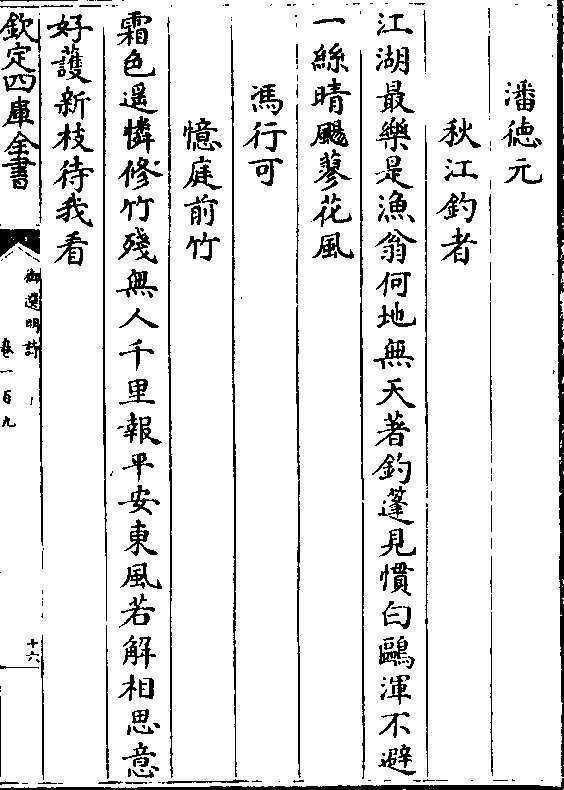 潘德元
秋江釣者
江湖最樂是漁翁何地無天著釣蓬見慣白鷗渾不避
一絲晴颺蓼花風
馮行可
憶庭前竹
霜色遥憐修竹殘無人千里報平安東風若解相思意
好䕶新枝待我看
欽定四庫全書
御選明詩
卷一百九
十六